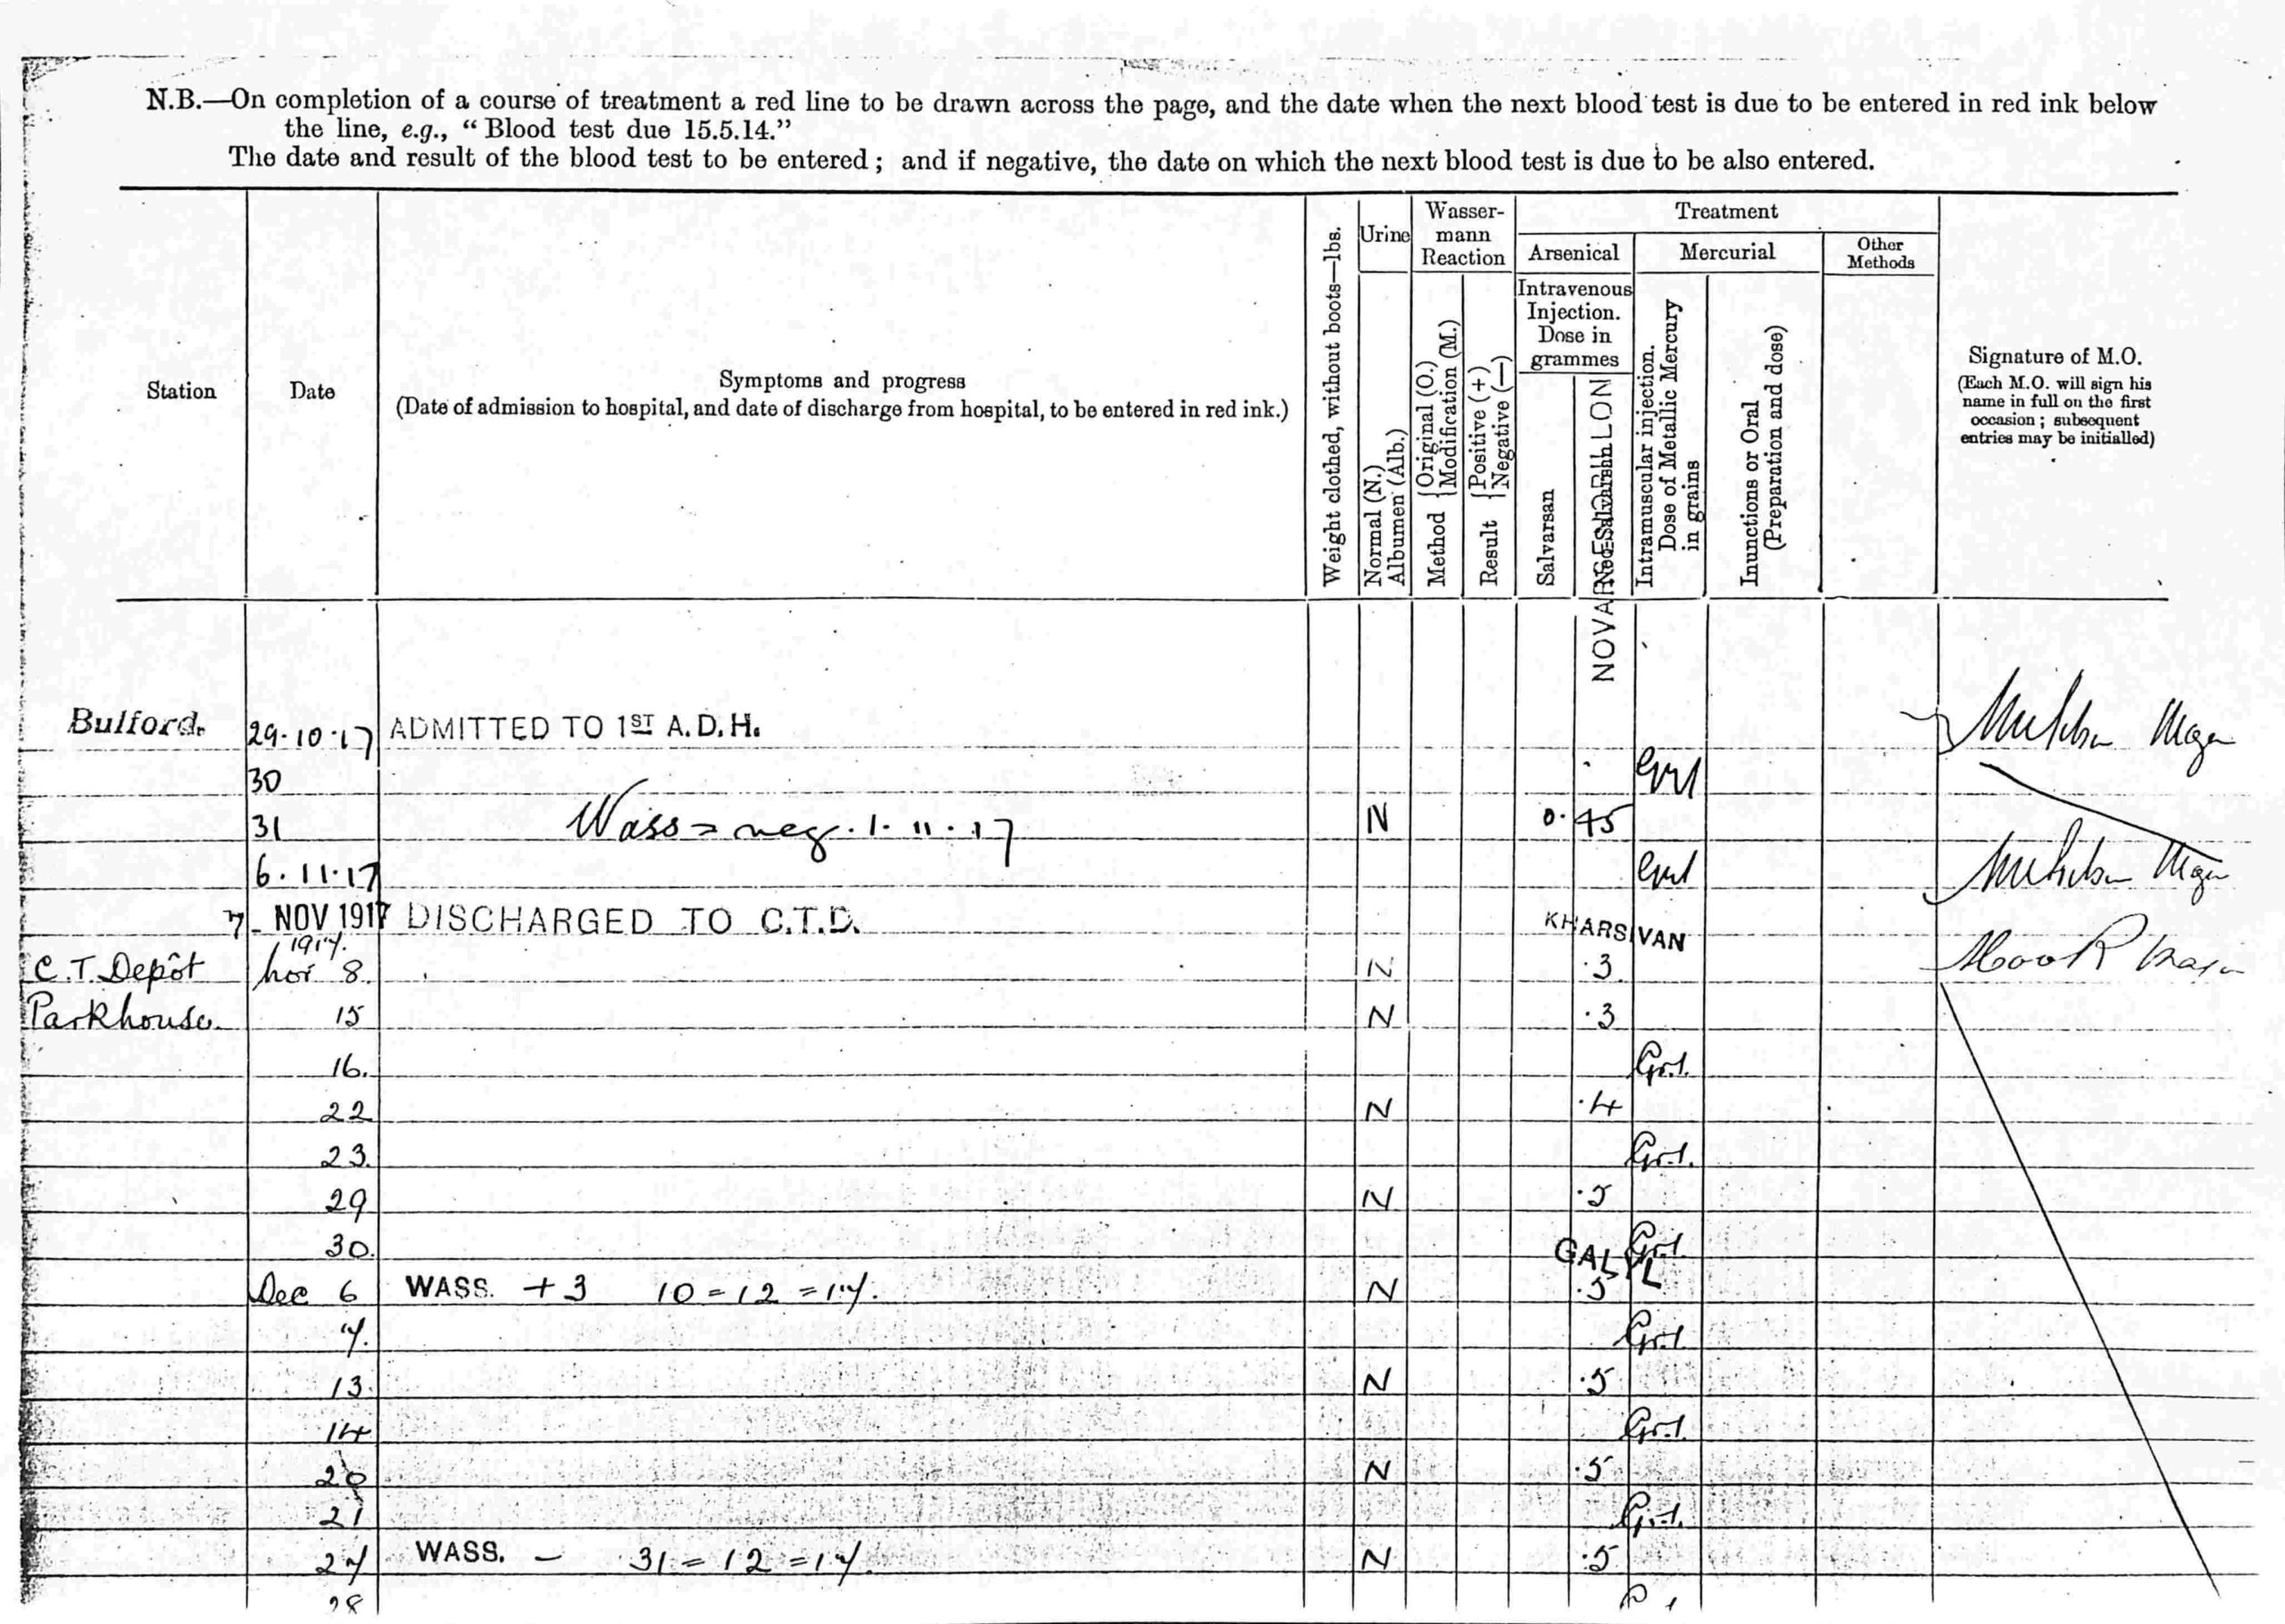 N.B.—On completion of a course of treatment a red line to be drawn across the page, and the date when the next blood test is due to be entered in red ink below
the line, e.g., “Blood test due 15.5.14.”
The date and result of the blood test to be entered; and if negative, the date on which the next blood test is due to be also entered.
Station
Date
Symptoms and progress
(Date of admission to hospital, and date of discharge from hospital, to be entered in red ink.)
Weight clothed, without boots—lbs.
Urine
Normal (N.)
Albumen (Alb.)
Wasser-
mann
Reaction
Method {Original (O.) Modification (M.)
Result {Positive (+) Negative (—)
Treatment
Arsenical
Intravenous
Injection.
Dose in
grammes
Salvarsan
Neo-Salvarsan
NOVARSENOBILLON
Mercurial
Intramuscular injection.
Dose of Metallic Mercury
in grains
Inunctions or Oral
(Preparation and dose)
Other
Methods
Signature of M.O.
(Each M.O. will sign his
name in full on the first
occasion; subsequent
entries may be initialled)
Bulford. 29.10.17 ADMITTED TO 1ST A.D.H.
30
31 Wass = neg. 1.11.17 N 0.45
6.11.17
7 - NOV 1917 DISCHARGED TO C.T.D. KHARSIVAN
1917.
C.T. Depôt Nov 8. N .3
Parkhouse. 15 N .3
16. Gr.1.
22 N .4
23. Gr.1.
29 N .5
30. Gr.1.
GALYL
Dec 6 WASS. +3 10=12=17. N .5
7. Gr.1.
13. N .5
14 Gr.1.
20 N .5
21 Gr.1.
27 WASS. — 31=12=17. N .5
28